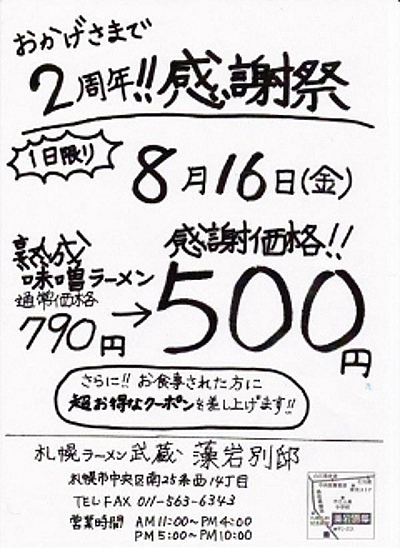 おかげさまで
2周年!!感謝祭
1日限り
8月16日(金)
熟成
味噌ラーメン
通常価格
790円
→
感謝価格!!
500円
さらに!! お食事された方に
超お得なクーポンを差し上げます!!
札幌ラーメン武蔵 藻岩別邸
札幌市中央区南25条西14丁目
TEL FAX 011-563-6343
営業時間 AM11:00~PM4:00
PM5:00~PM10:00